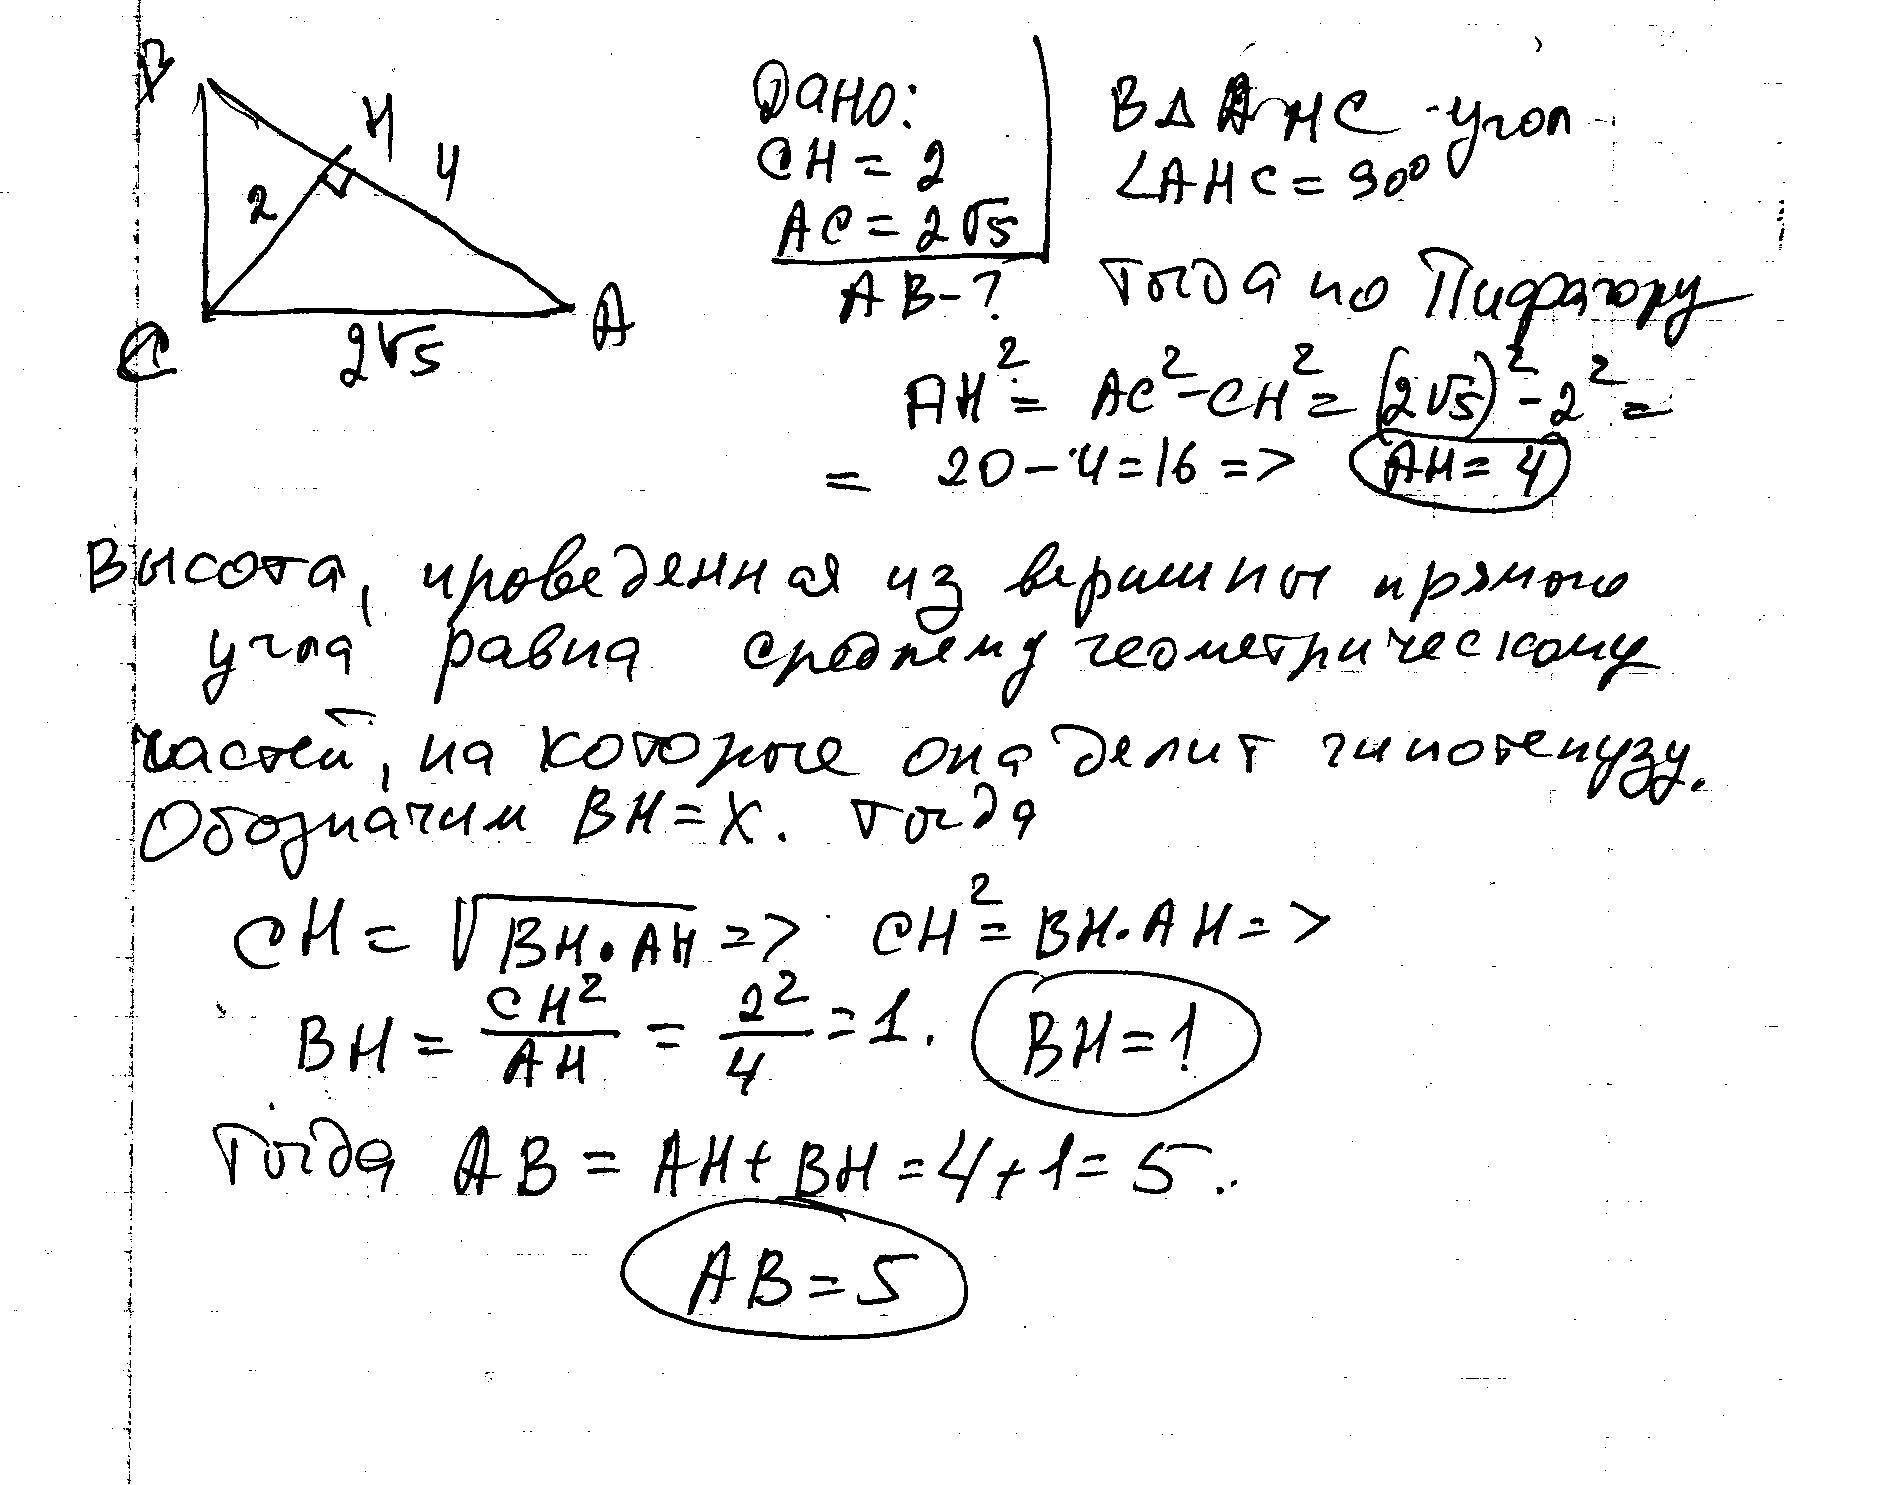 B
H
4
2
C
2√5
A
Дано:
CH = 2
AC = 2√5
AB - ?
В Δ AHC - угол
∠AHC = 90°
Тогда по Пифагору
AH² = AC² - CH² = (2√5)² - 2² =
= 20 - 4 = 16 => AH = 4
Высота, проведенная из вершины прямого
угла равна среднему геометрическому
частей, на которые она делит гипотенузу.
Обозначим BH = x. Тогда
CH = √BH·AH => CH² = BH·AH =>
BH = CH²/AH = 2²/4 = 1. BH = 1
Тогда AB = AH + BH = 4 + 1 = 5.
AB = 5